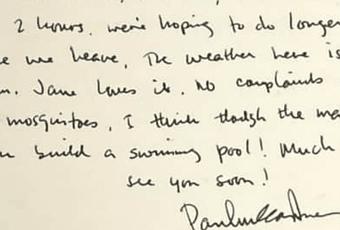 2 hours. we're hoping to do longer
e we leave. The weather here is
n. Jane loves it. No complaints
mosquitoes. I think though the ma
u build a swimming pool! Much
see you soon!